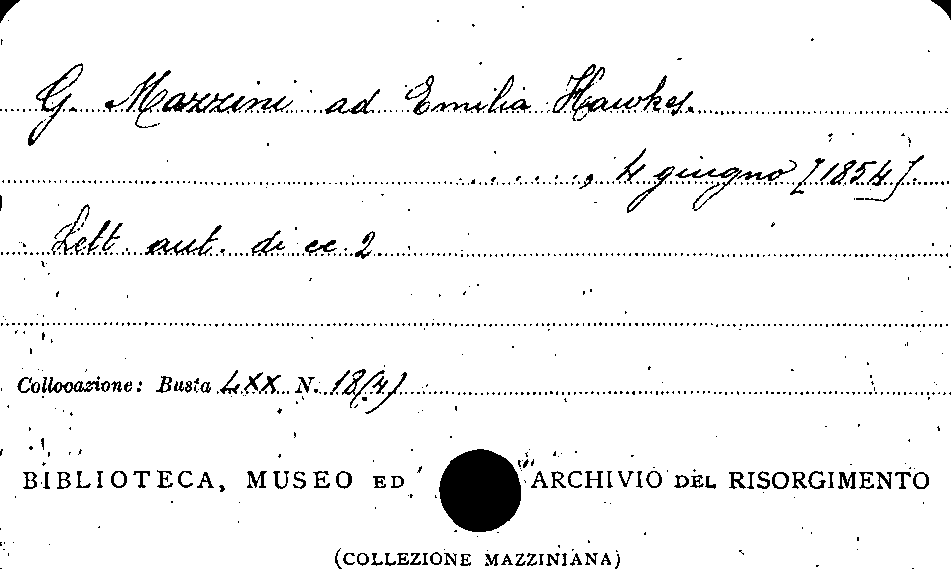 G. Mazzini ad Emilia Hawkes.
......, 4 giugno [1854].
Lett. aut. di cc. 2.
Collocazione: Busta LXX N. 18(4)
BIBLIOTECA, MUSEO ED ARCHIVIO DEL RISORGIMENTO
(COLLEZIONE MAZZINIANA)